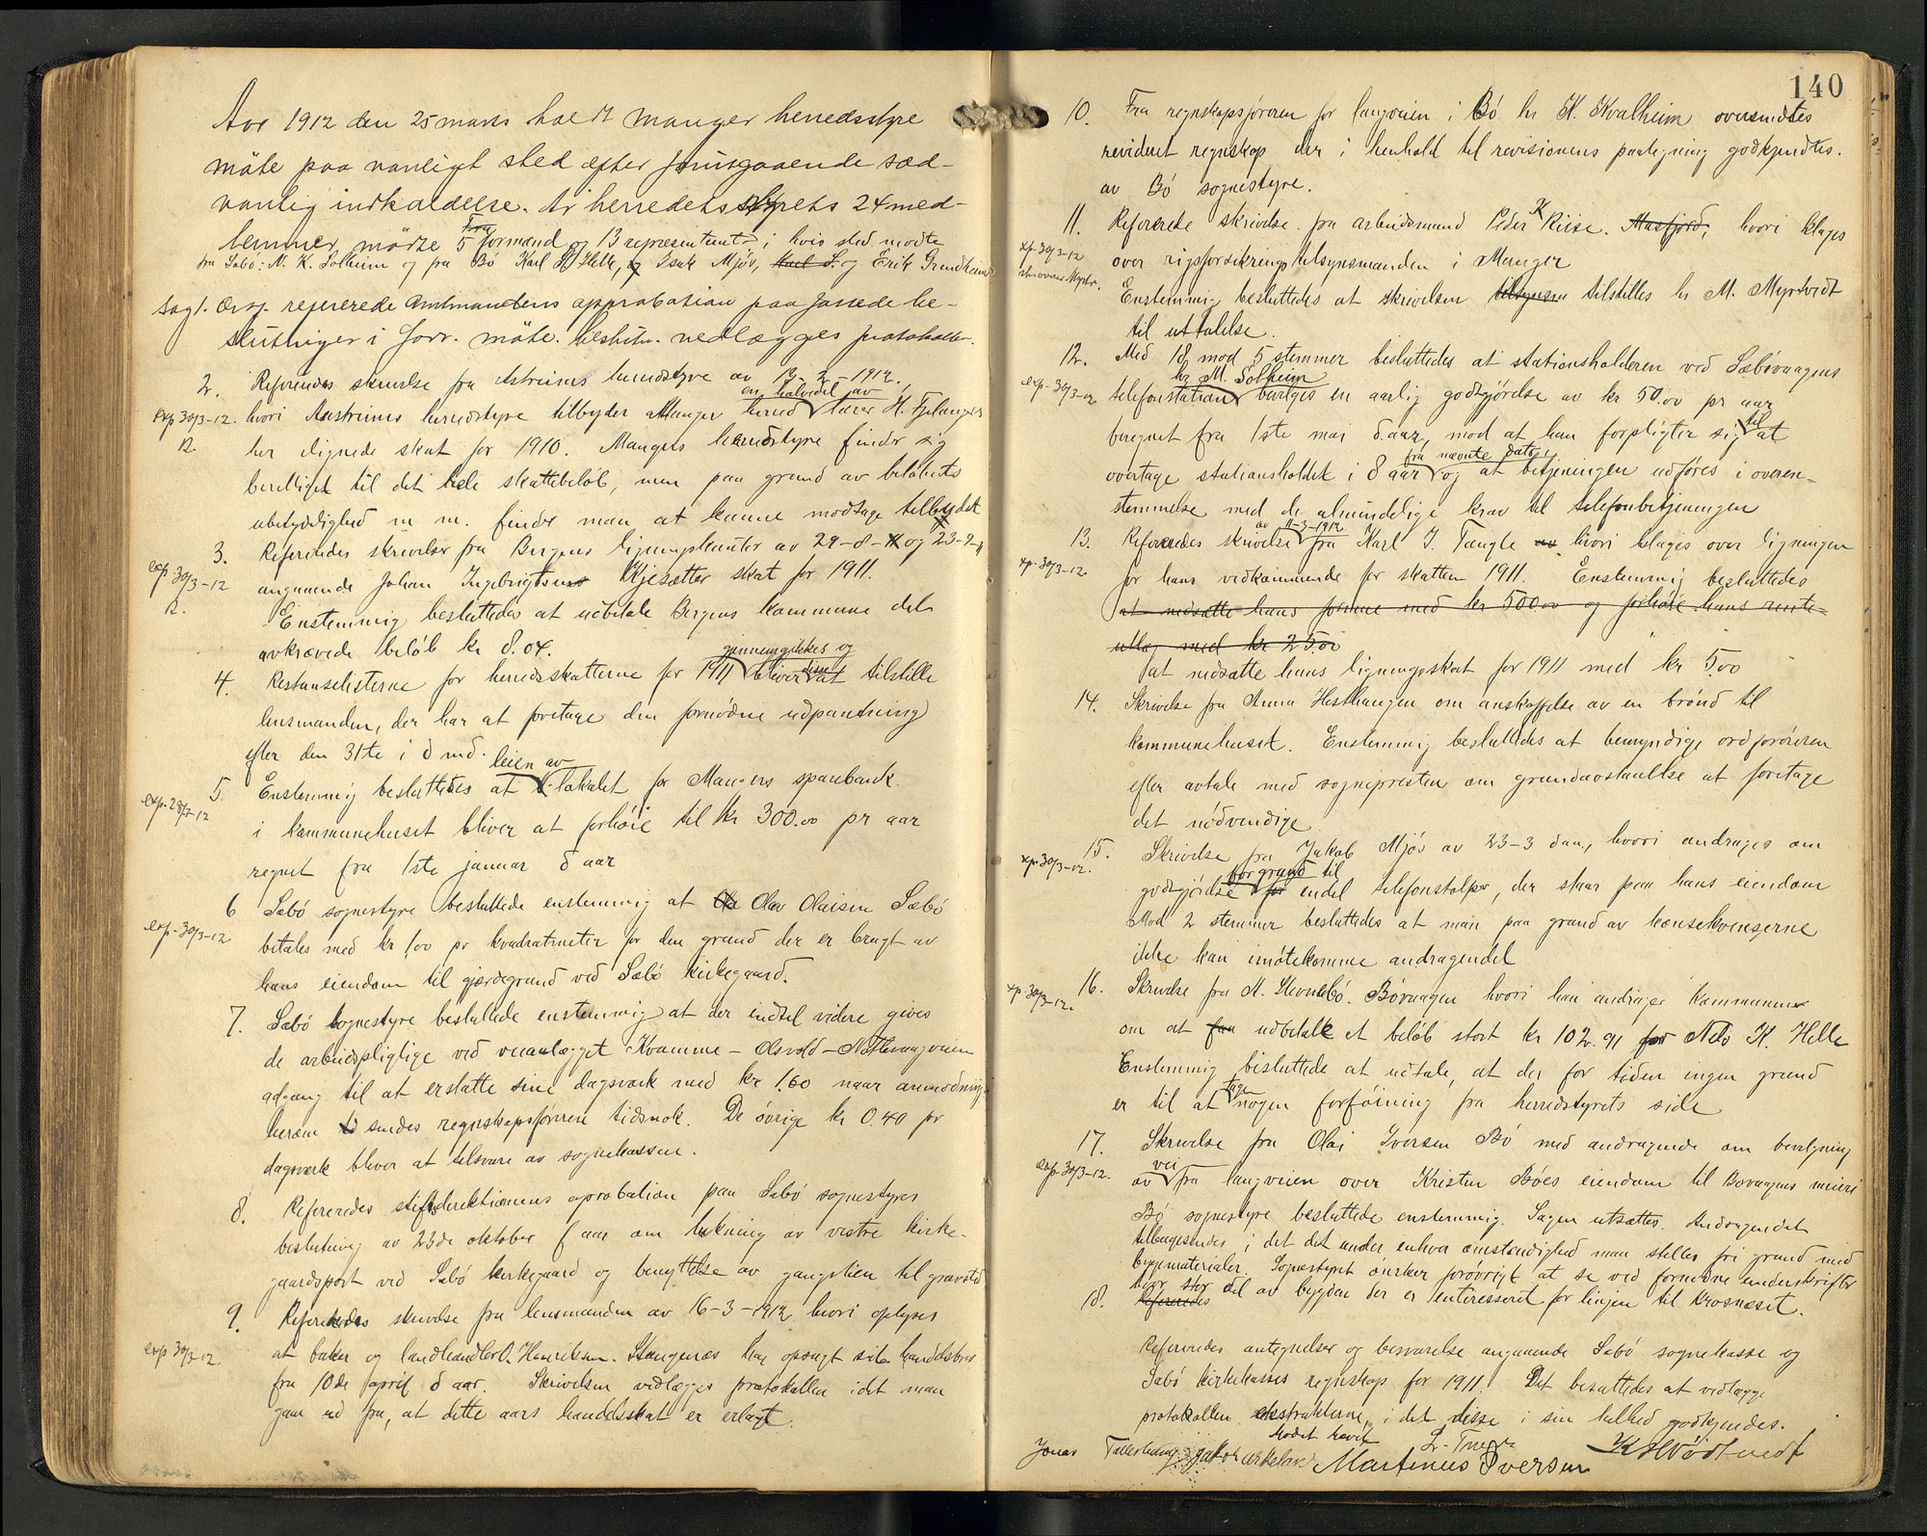 Aar 1912 den 25 mars holdt Manger herredsstyre
møte paa vanligt sted efter forutgaaende sæd-
vanlig indkaldelse. Av herredsstyrets 24 med-
lemmer mødte 5 formænd og 13 repræsentanter i hvis sted mødte
fra Sæbø: N. K. Solheim og fra Bø Karl H. Helle, Isak Mjøs, Karl S. og Erik Grundheim
Sag 1. Ordf. refererede Amtmandens approbasion paa fattede be-
slutninger i forr. møte. beslutn. vedlægges protokollen.
2. Refereredes skrivelse fra Austreims herredstyre av 13-2-1912,
exp 30/3-12. hvori Austreims herredstyre tilbyder Manger herred en halvdel av lærer H. Fjelanger
her lignede skat for 1910. Mangers herredstyre finder sig
berettiget til det hele skattebeløb, men paa grund av beløbets
ubetydelighed m. m. finder man at kunne modtage tilbudet
3. Refereredes skrivelser fra Bergens ligningskontor av 29-8-11 og 23-2-
exp 30/3-12 angaaende Johan Ingebrigtsens Kjesætter skat for 1911.
Enstemmig besluttedes at utbetale Bergens kommune det
avkrævede beløb kr 8.04.
4. Restanselisterne for herredsskatterne for 1911 gjennemgikkes og bliver disse at tilstille
lensmanden, der har at foretage den fornødne udpantning
efter den 31te i d md.
5. Enstemmig besluttedes at leien av lokalet for Mangers sparebank
exp. 28/3-12 i kommunehuset bliver at forhøie til kr 300.00 pr aar
regnet fra 1ste januar d aar
6 Sæbø sognestyre besluttede enstemmig at Olav Olaisen Sæbø
exp. 30/3-12 betales med kr 1,00 pr kvadratmeter for den grund der er bragt av
hans eiendom til gjærdegrund ved Sæbø kirkegaard.
7. Sæbø sognestyre besluttede enstemmig at der indtil videre gives
de arbeidspligtige ved veianlægget Kvamme – Olsvold – Nøtlevaagveien
adgang til at erstatte sine dagsverk med kr 1.60 naar anmodning
herom sendes regnskapsføreren tidsnok. De øvrige kr 0.40 pr
dagsverk bliver at tilsvare av sognekassen.
8. Refereredes stiftsdirektionens aprobation paa Sæbø sognestyres
beslutning av 23de oktober f aar om lukning av vestre kirke-
gaardsport ved Sæbø kirkegaard og benyttelse av gangstien til gravsted
9. Refereredes skrivelse fra lensmanden av 16-3-1912 hvori oplyses
exp 30/3-12. at baker og landhandler O. Henriksen. Stangenæs har opsagt sit handelsbrev
fra 10de april d aar. Skrivelsen vedlægges protokollen idet man
gaar ud fra, at dette aars handelsskat er erlagt.
140
10. Fra regnskapsføreren for langveien i Bø hr K. Kvalheim oversendtes
revideret regnskap der i henhold til revisionens paategning godkjendtes.
av Bø sognestyre.
11. Refererede skrivelse fra arbeidsmand Peder K Riise. Masfjord, hvori klages
exp. 30/3-12 over rigsforsikrings tilsynsmanden i Manger
Enstemmig besluttedes at skrivelsen tilstilles hr M. Myrtvedt
til uttalelse.
12. Med 18 mod 5 stemmer besluttedes at stationsholderen ved Sæbøvaagens
exp. 30/3-02 telefonstation hr M. Solheim bevilges en aarlig godtgjørelse av kr 50.00 pr aar
beregnet fra 1ste mai d.aar, mod at han forpligter sig til at
overtage stationsholdet i 8 aar fra nævnte dato, og at betjeningen udføres i overen-
stemmelse med de almindelige krav til telefonbetjeningen
13. Refereredes skrivelse av 11-3-1912 fra Karl J. Tængle hvori klages over ligningen
exp. 30/3-12. for hans vedkommende for skatten 1911. Enstemmig besluttedes
at nedsætte hans formue med kr 500.00 og forhøie hans rente-
utlæg med kr 25.00
at nedsætte hans ligningsskat for 1911 med kr 5.00
14. Skrivelse fra Anna Hesthaugen om anskaffelse av en brønd til
kommunehuset. Enstemmig besluttedes at bemyndige ordføreren
efter avtale med sognepresten om grundavstaaelse at foretage
det nødvendige
15. Skrivelse fra Jakob Mjøs av 23-3 d.aa, hvori andrages om
exp. 30/3-02. godtgjørelse for grund til endel telefonstolper, der staar paa hans eiendom
Mod 2 stemmer besluttedes at man paa grund av konsekvenserne
ikke kan imøtekomme andragendet
16. Skrivelse fra M. Stevnebø. Bøvaagen hvori han andrager kommunen
exp 30/3-12. om at utbetale et beløb stort kr 102.91 for Nels K. Helle
Enstemmig besluttede at udtale, at der for tiden ingen grund
er til at tage nogen forføining fra herredstyrets side
17. Skrivelse fra Olai Iversen Bø med andragende om bevilgning
exp. 30/3-12. av vei fra langveien over Kristen Bøes eiendom til Bovaagens meieri
Bø sognestyre besluttede enstemmig. Sagen utsættes. Andragendet
tilbagesendes i det det under enhver omstændighed maa stilles fri grund med
byggematerialer. Sognestyret ønsker forøvrigt at se ved fornødne underskrifter
hvor stor del av bygden der er interesseret for linjen til Krosneset.
18. Refereredes
Refereredes antegnelser og besvarelse angaaende Sæbø sognekasse og
Sæbø kirkekasses regnskap for 1911. Det besluttedes at vedlægge
protokollen ekstrakterne, i det disse i sin helhed godkjendes.
Mødet hævet
Jonas Jakob Martinus Iversen